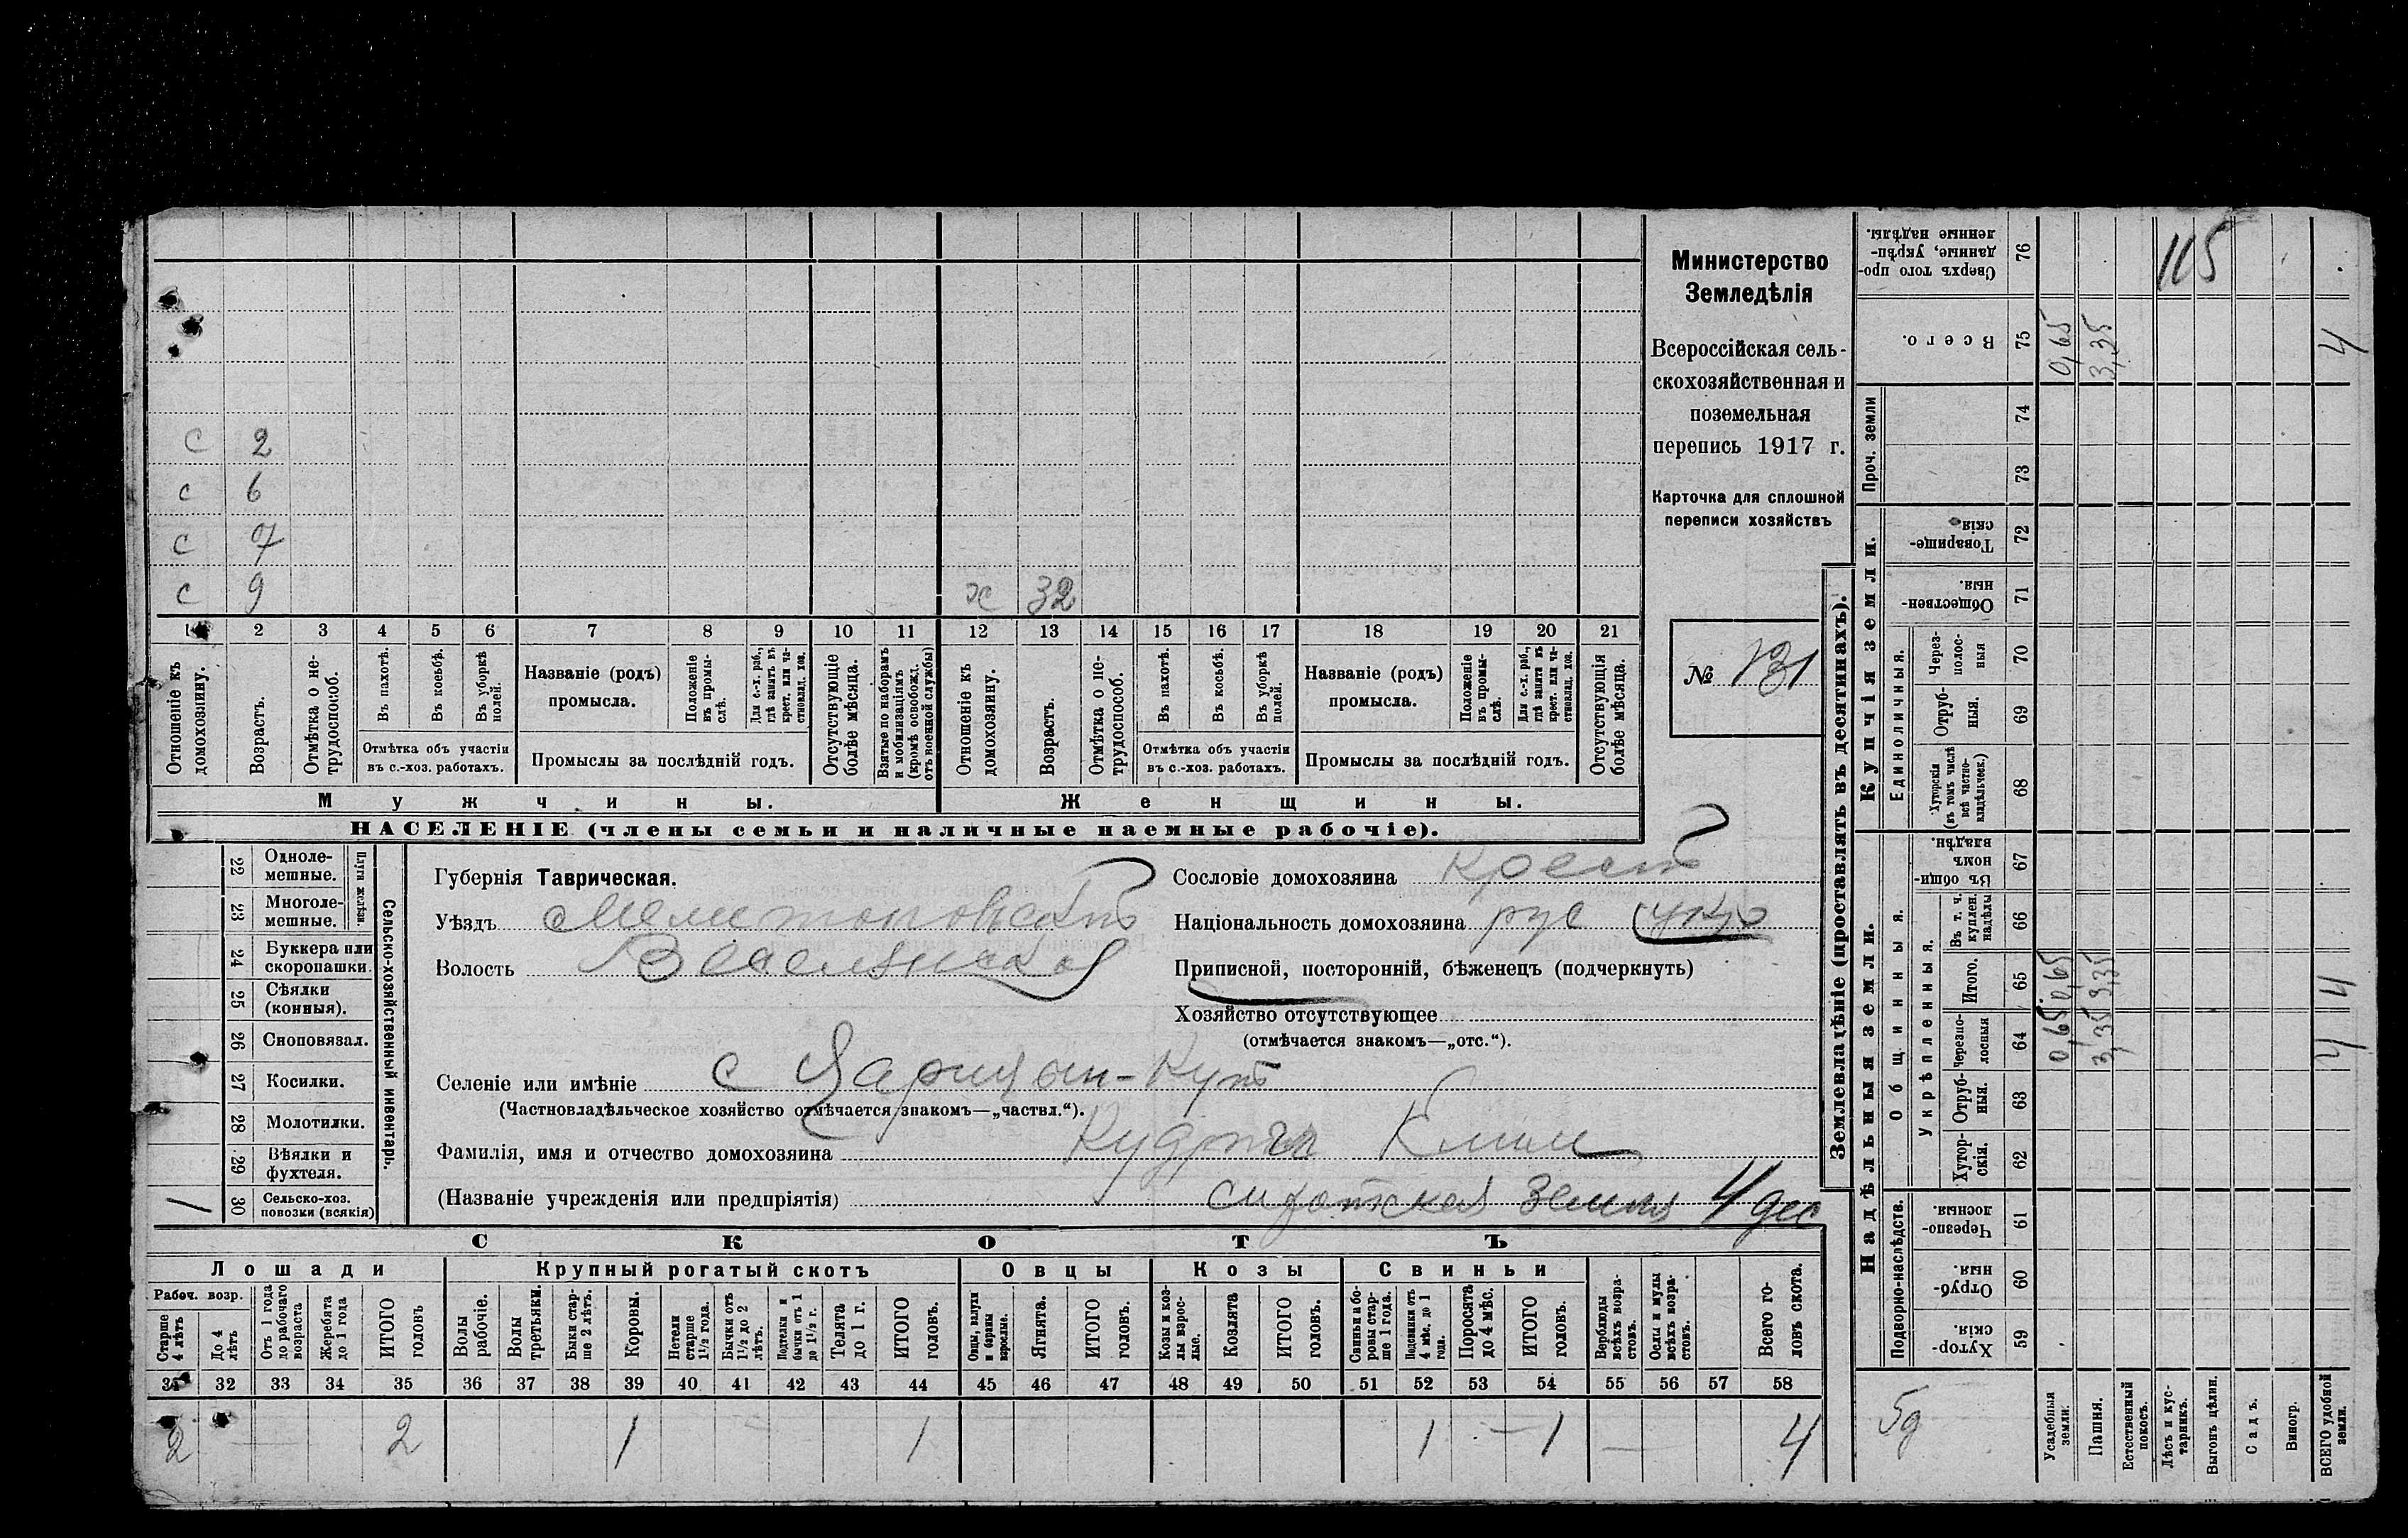 с 2
с 6
с 7
с 9
ж 32
1 2 3 4 5 6 7 8 9 10 11 12 13 14 15 16 17 18 19 20 21
Отношеніе къ домохозяину.
Возрастъ.
Отмѣтка о не-трудоспособ.
Въ пахотѣ.
Въ косьбѣ.
Въ уборкѣ полей.
Отмѣтка объ участіи въ с.-хоз. работахъ.
Названіе (родъ) промысла.
Положеніе въ промы-слѣ.
Для с.-х. раб., гдѣ занятъ въ крест. или ча-стновлад. хоз.
Промыслы за послѣдній годъ.
Отсутствующіе болѣе мѣсяца.
Взятые по наборамъ и мобилизаціямъ (кромѣ освобожд. отъ военной службы)
Отношеніе къ домохозяину.
Возрастъ.
Отмѣтка о не-трудоспособ.
Въ пахотѣ.
Въ косьбѣ.
Въ уборкѣ полей.
Отмѣтка объ участіи въ с.-хоз. работахъ.
Названіе (родъ) промысла.
Положеніе въ промы-слѣ.
Для с.-х. раб., гдѣ занята въ крест. или ча-стновлад. хоз.
Промыслы за послѣдній годъ.
Отсутствующія болѣе мѣсяца.
Мужчины.
Женщины.
НАСЕЛЕНІЕ (члены семьи и наличные наемные рабочіе).
Министерство
Земледѣлія
Всероссійская сель-
скохозяйственная и
поземельная
перепись 1917 г.
Карточка для сплошной
переписи хозяйствъ
№ 131
22 Одноле-мешные.
23 Многоле-мешные.
Плуги желѣзн.
24 Буккера или скоропашки.
25 Сѣялки (конныя).
26 Сноповязал.
27 Косилки.
28 Молотилки.
29 Вѣялки и фухтеля.
30 Сельско-хоз. повозки (всякія) 1
Сельско-хозяйственный инвентарь.
Губернія Таврическая.
Уѣздъ Мелитопольскій
Волость Веселовская
Селеніе или имѣніе с Царицын-Кутъ
(Частновладѣльческое хозяйство отмѣчается знакомъ—„частвл.“).
Фамилія, имя и отчество домохозяина Климъ
(Названіе учрежденія или предпріятія) сиротская земля 4 дес
Сословіе домохозяина крест
Національность домохозяина рус укр
Приписной, посторонній, бѣженецъ (подчеркнуть)
Хозяйство отсутствующее
(отмѣчается знакомъ—„отс.“).
СКОТЪ
Лошади
Крупный рогатый скотъ
Овцы
Козы
Свиньи
Рабоч. возр.
Старше 4 лѣтъ
До 4 лѣтъ
Отъ 1 года до рабочаго возраста
Жеребята до 1 года
ИТОГО головъ
Волы рабочіе.
Волы третьяки.
Быки стар-ше 2 лѣтъ.
Коровы.
Нетели старше 1½ года.
Бычки отъ 1½ до 2 лѣтъ.
Подтелки и бычки отъ 1 до 1½ г.
Телята до 1 г.
ИТОГО головъ.
Овцы, валухи и бараны взрослые.
Ягнята.
ИТОГО головъ.
Козы и коз-лы взрос-лые.
Козлята
ИТОГО головъ.
Свиньи и бо-ровы стар-ше 1 года.
Подсвинки отъ 4 мѣс. до 1 года.
Поросята до 4 мѣс.
ИТОГО головъ.
Верблюды всѣхъ возра-стовъ.
Ослы и мулы всѣхъ возра-стовъ.
Всего го-ловъ скота.
31 32 33 34 35 36 37 38 39 40 41 42 43 44 45 46 47 48 49 50 51 52 53 54 55 56 57 58
2 2 1 1 1 1 4
Землевладѣніе (проставлять въ десятинахъ).
Надѣльныя земли.
Купчія земли.
Проч. земли
Подворно-наслѣдств.
Общинныя.
Укрѣпленныя.
Единоличныя.
Хутор-скія 59
Отруб-ныя. 60
Черезпо-лосныя. 61
Хутор-скія. 62
Отруб-ныя. 63
Черезпо-лосныя 64
Итого. 65
Въ т. ч. куплен. надѣлы 66
Въ общи-номъ владѣн. 67
Хуторскія (въ томъ числѣ всѣ частно-владѣльческ.) 68
Отруб-ныя. 69
Через-полос-ныя 70
Обществен-ныя. 71
Товарище-скія. 72
73
74
Всего. 75
Сверхъ того про-данные, укрѣп-ленные надѣлы. 76
5д
Усадебныя земли. 0,65 0,65 0,65
Пашня. 3,35 3,35 3,35
Естественный покосъ.
Лѣсъ и кус-тарникъ.
Выгонъ цѣлин.
Садъ.
Виногр.
ВСЕГО удобной земли. 4 4 4
115